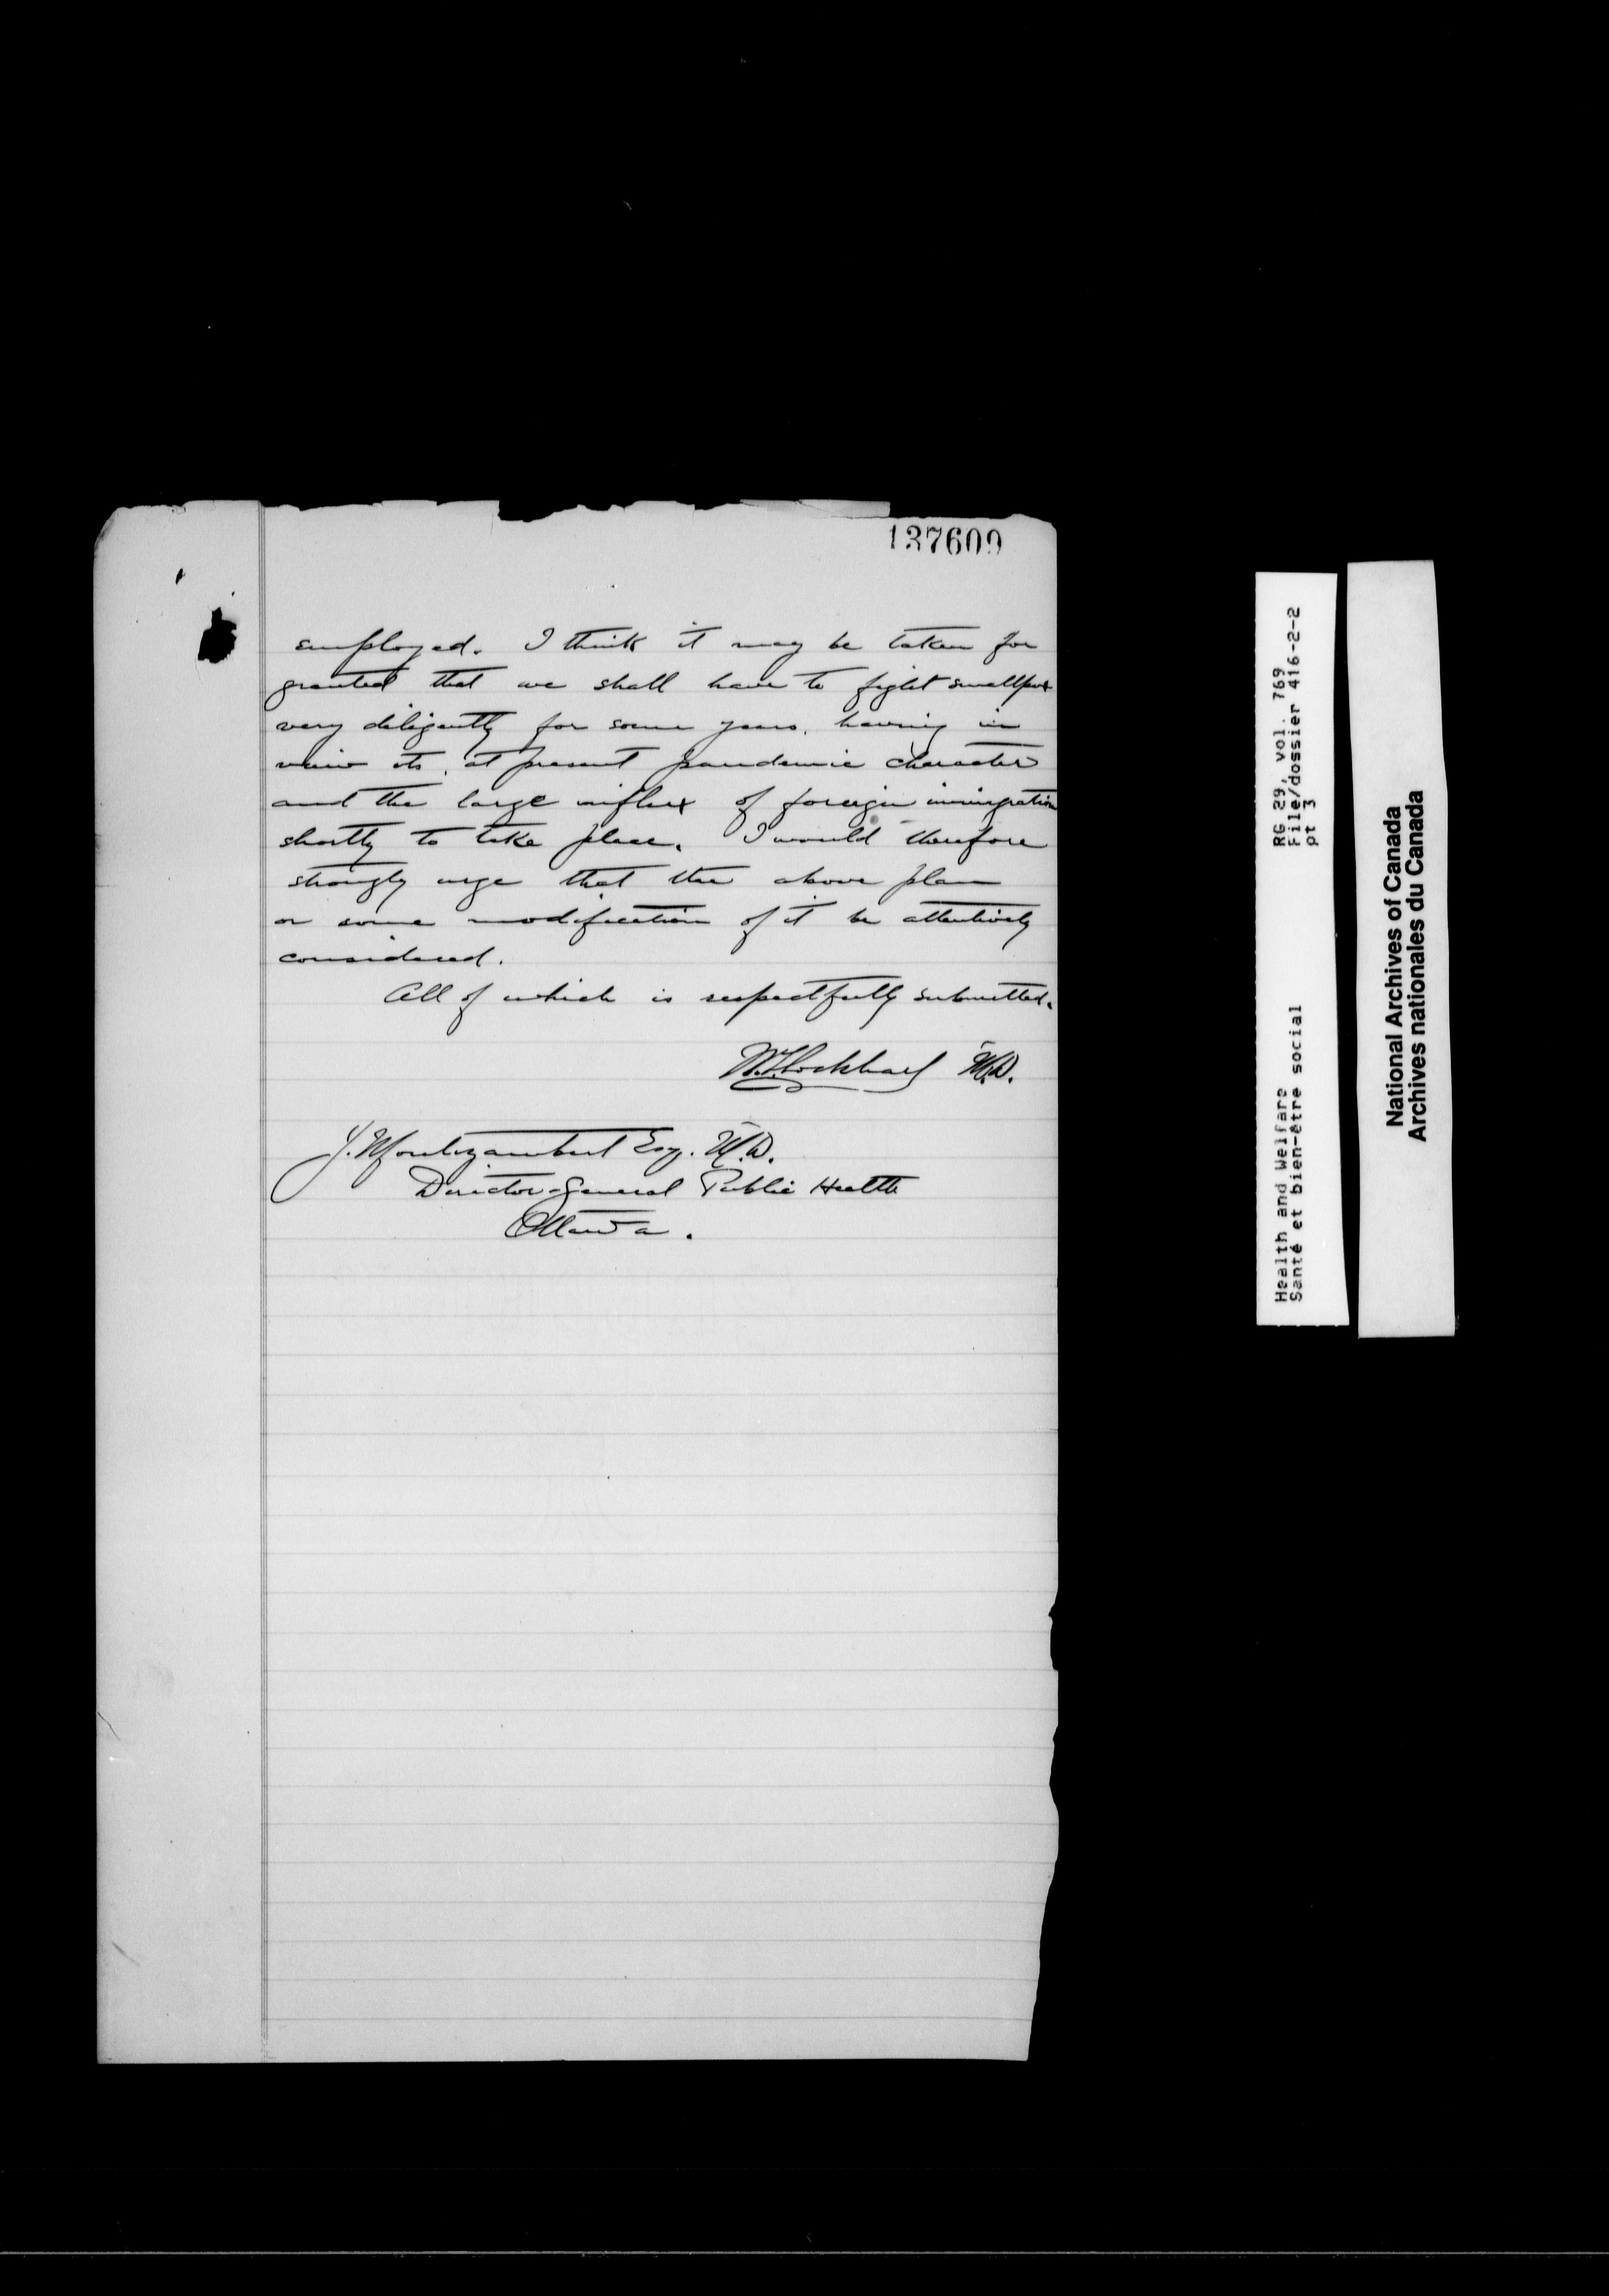 137609
employed. I think it may be taken for
granted that we shall have to fight smallpox
very diligently for some years, having in
view its, at present pandemic character
and the large influx of foreign immigration
shortly to take place. I would therefore
strongly urge that the above plan
or some modification of it be attentively
considered.
All of which is respectfully submitted.
M.D.
Montizambert Esq. M.D.
Director-General Public Health
Ottawa.
RG 29, vol. 769
File/dossier 416-2-2
pt 3
Health and Welfare
Santé et bien-être social
National Archives of Canada
Archives nationales du Canada